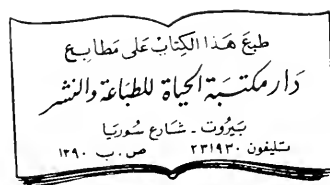 طبعَ هَذا الكِتابُ عَلى مَطابِع
دَار مكتبَة الحيَاة للطبَاعَة وَالنشر
بَيروت - شارع سُوريَا
تليفون ٢٣١٩٣٠ ص.ب ١٣٩٠